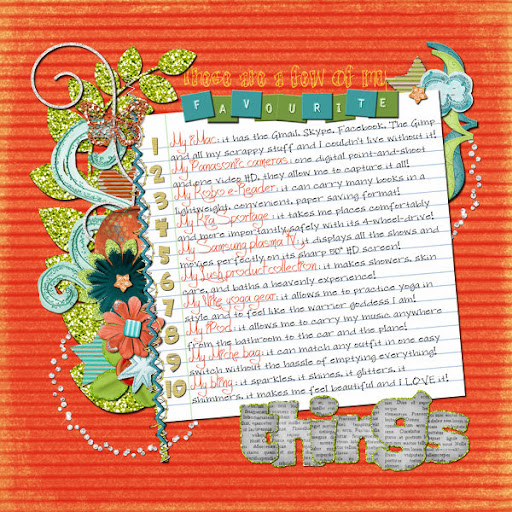 These are a few of my
FAVOURITE
1 My iMac: it has the Gmail, Skype, Facebook, The Gimp
and all my scrappy stuff and I couldn't live without it!
2 My Panasonic cameras: one digital point-and-shoot
and one video HD, they allow me to capture it all!
3 My Kobo e-Reader: it can carry many books in a
lightweight, convenient, paper saving format!
4 My Kia Sportage: it takes me places comfortably
and more importantly safely with its 4-wheel-drive!
5 My Samsung plasma TV: it displays all the shows and
movies perfectly on its sharp 50" HD screen!
6 My Lush product collection: it makes showers, skin
care, and baths a heavenly experience!
7 My Nike yoga gear: it allows me to practice yoga in
style and to feel like the warrior goddess I am!
8 My iPod: it allows me to carry my music anywhere
from the bathroom to the car and the plane!
9 My Miche bag: it can match any outfit in one easy
switch without the hassle of emptying everything!
10 My bling: it sparkles, it shines, it glitters, it
shimmers, it makes me feel beautiful and I LOVE it!
things